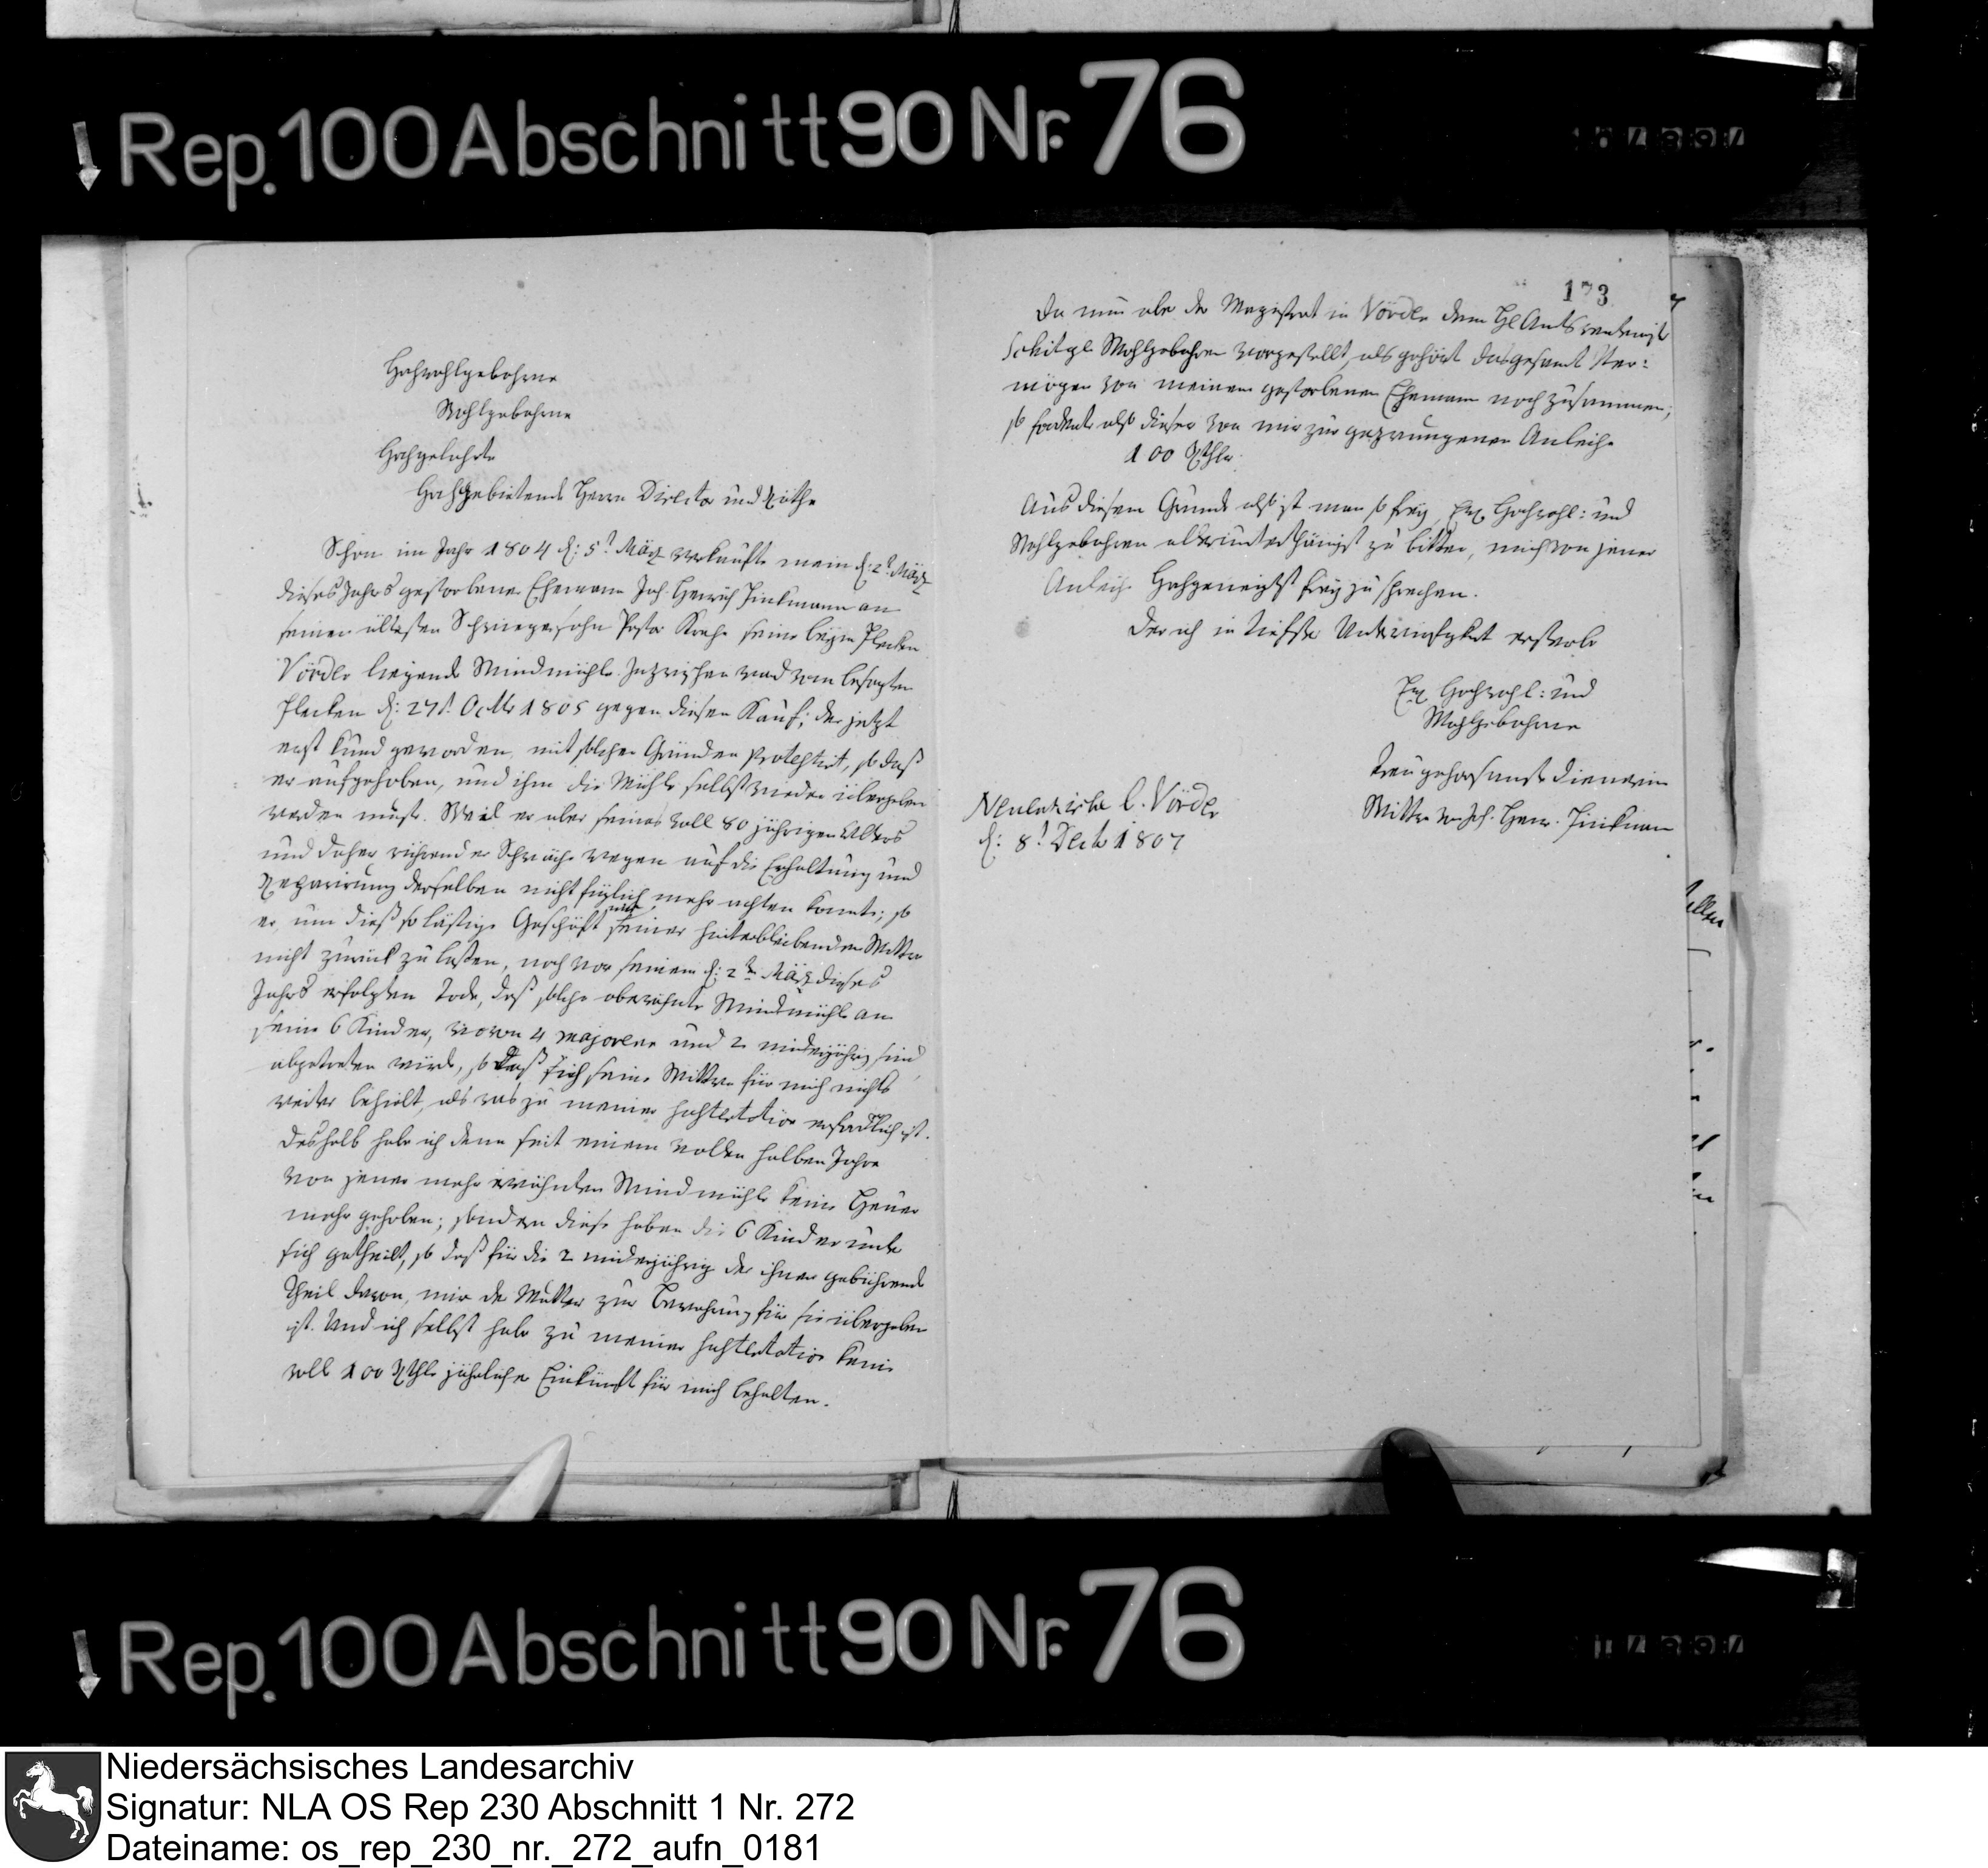 Rep. 100 Abschnitt 90 Nr. 76
Hochwohlgebohrne
Wohlgebohrne
Hochgelahrte
Hochgebietende Herrn Director und Räthe
Schon im Jahr 1804 d: 5t März verkaufte mein d: 2t März
dieses Jahrs gestorbener Ehemann Joh. Henrich Finkmann an
seinen ältesten Schwiegersohn Pastor seine beym Flecken
Vörden liegende Windmühle. Inzwischen ward vom besagten
Flecken d: 27t. Octbr 1805 gegen diesen Kauf, der jetzt
erst kund geworden, mit solchen Gründen protestirt, so daß
er aufgehoben, und ihm die Mühle selbst wieder übergeben
werden mußte. Weil er aber seines voll 80 jährigen Alters
und daher rührender Schwäche wegen auf die Erhaltung und
Reparirung derselben nicht füglich mehr achten konnte; so
er, um dieß so lästige Geschäft seiner hinterbleibenden Wittwe
nicht zurück zu laßen, noch vor seinem d: 2t März dieses
Jahrs erfolgten Tode, daß solche oberwähnte Windmühle an
seine 6 Kinder, wovon 4 majorenn und 2 minderjährig sind,
abgetreten würde, so daß sich seine Wittwe für mich nichts
weiter behielt, als was zu meiner Sustentation erforderlich ist.
Deshalb habe ich denn seit einem vollen halben Jahre
von jener mehr erwähnten Windmühle keine Heuer
mehr gehoben; sondern diese haben die 6 Kinder unter
sich getheilt, so daß für die 2 minderjährig der ihnen gebührende
Theil davon, mir der Mutter zur Bewahrung für sie übergeben
ist. Und ich selbst habe zu meiner Sustentation keine
voll 100 Rthlr jährliche Einkünfte für mich behalten.
173
Da nun aber der Magistrat in Vörden dem H Amtsrentmstr
Wohlgebohren vorgestellt, als gehört das gesamt Ver:
mögen von meinem gestorbenen Ehemann noch zusammen;
so forderte also dieser von mir zur gezwungenen Anleihe
100 Rthlr.
Aus diesem Grunde also ist man so frey, Ew. Hochwohl: und
Wohlgebohren allerunterthänigst zu bitten, mich von jener
Anleihe Hochgeneigtst frey zu sprechen.
Der ich in tiefster Unterwürfigkeit ersterbe
Ew. Hochwohl: und
Wohlgebohrne
treugehorsamste Dienerin
Wittwe von Joh. Henr. Finkmann
Neuenkirchen b. Vörden
d: 8t Decbr 1807
Rep. 100 Abschnitt 90 Nr. 76
Niedersächsisches Landesarchiv
Signatur: NLA OS Rep 230 Abschnitt 1 Nr. 272
Dateiname: os_rep_230_nr._272_aufn_0181